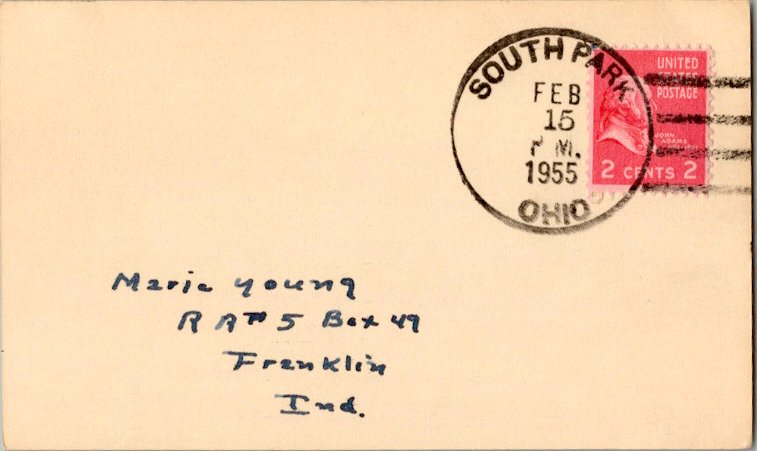 SOUTH PARK
FEB
15
P M.
1955
OHIO
UNITED
STATES
POSTAGE
JOHN
ADAMS
2 CENTS 2
Maria Young
R R # 5 Box 49
Franklin
Ind.